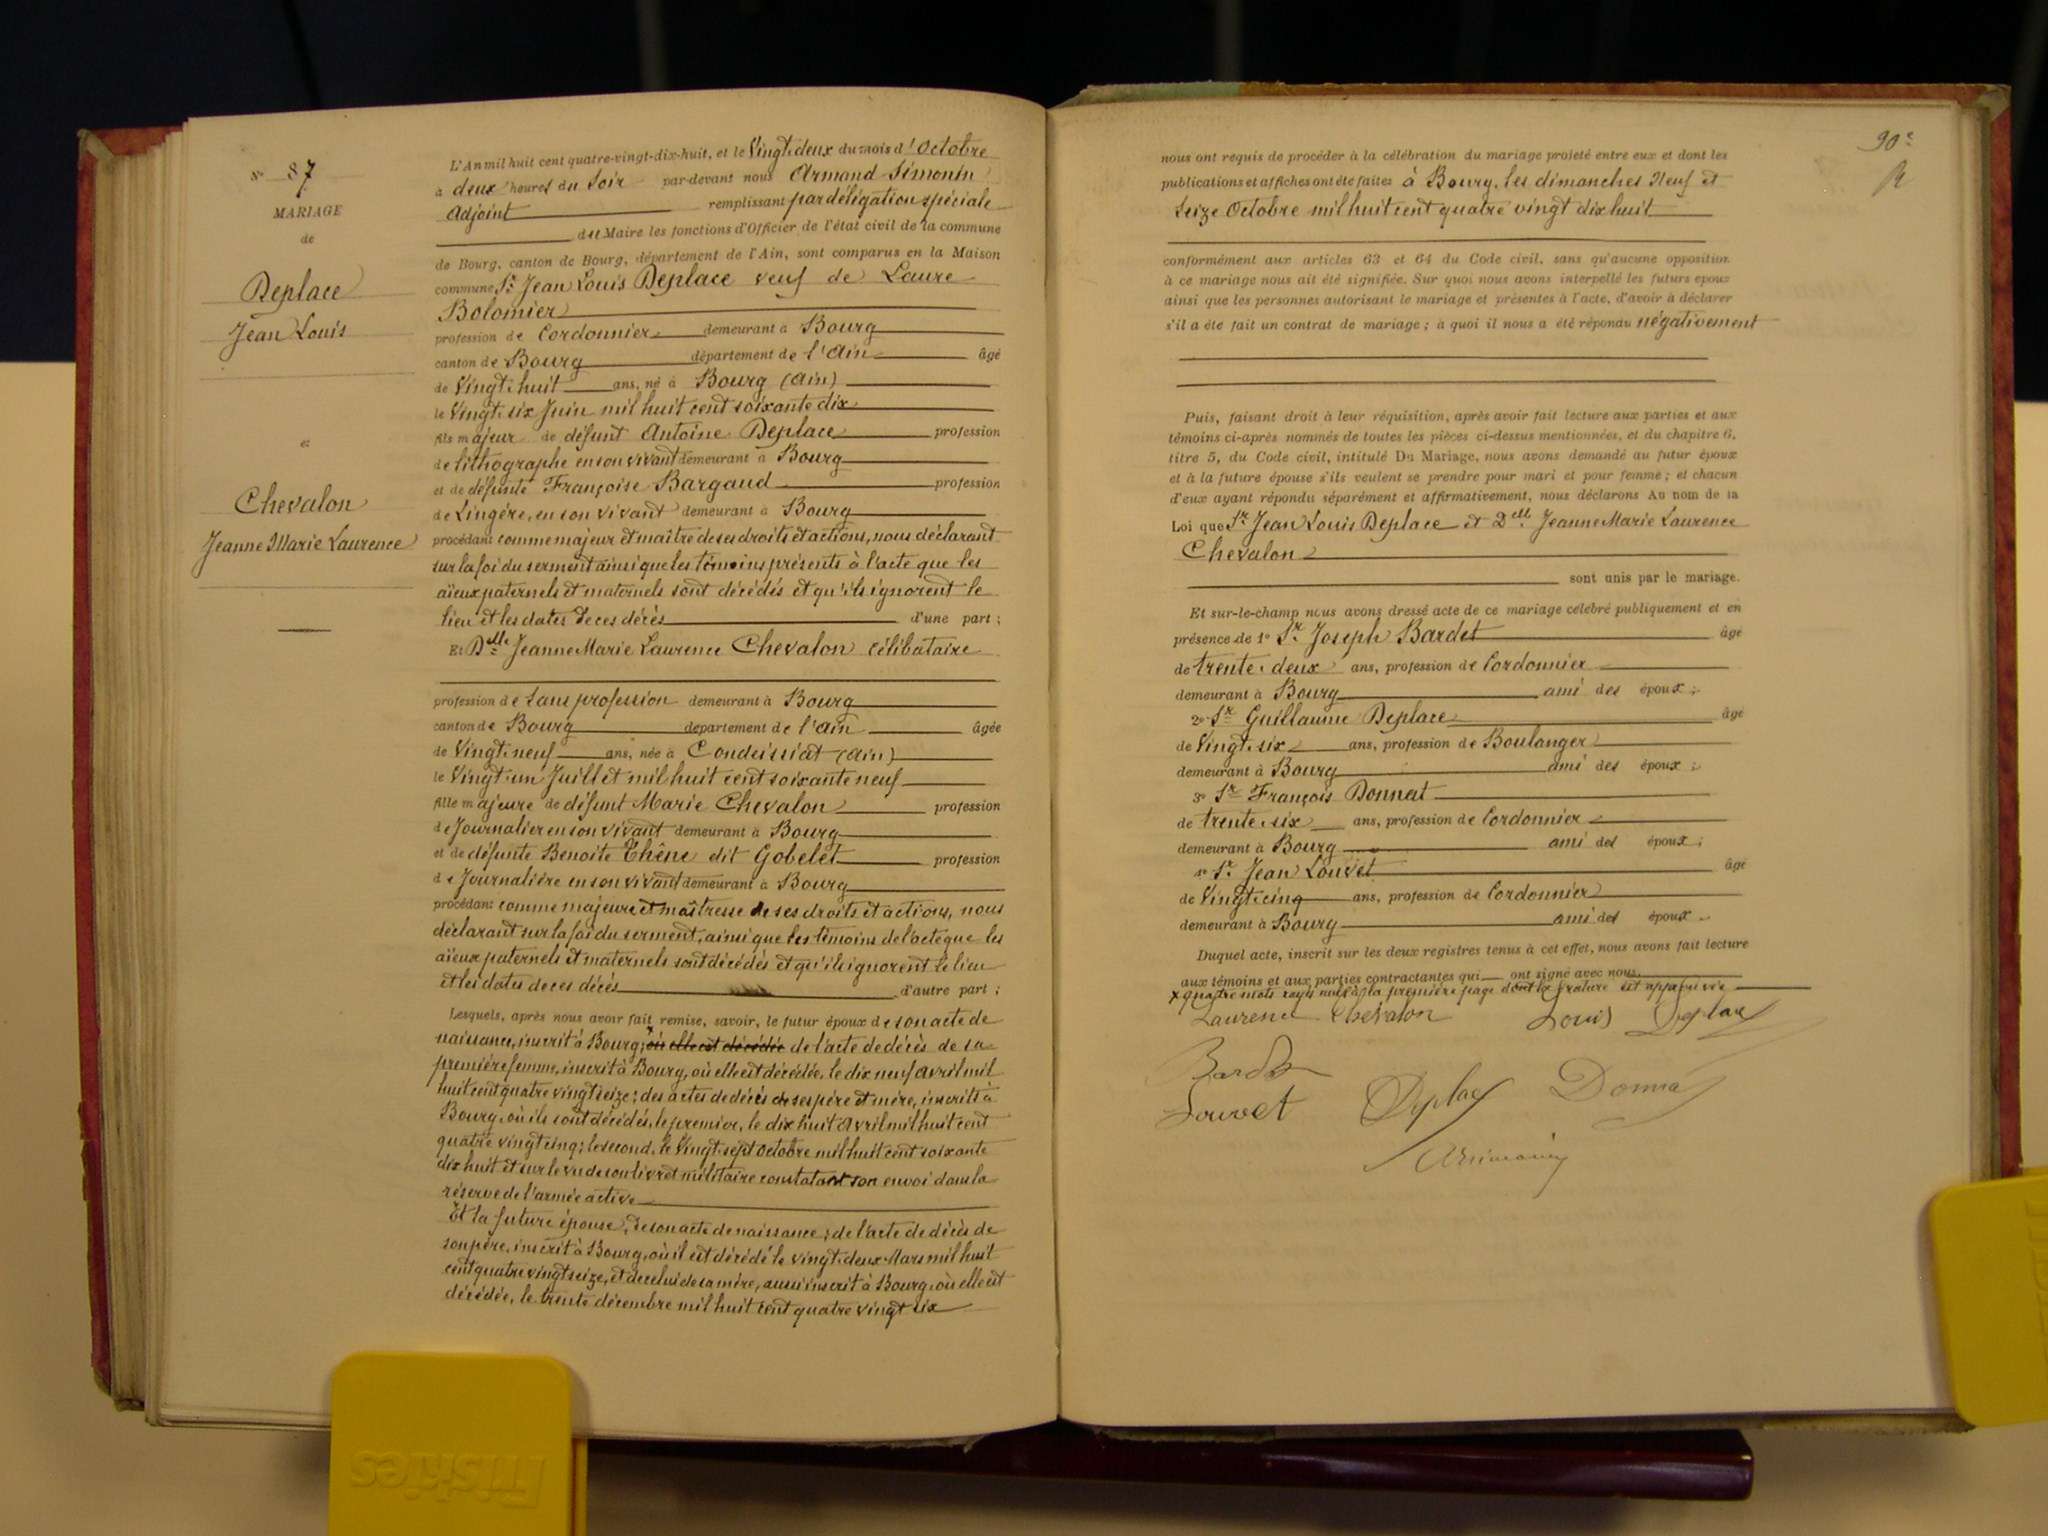 N° 87
MARIAGE
de
Deplace
Jean Louis
et
Chevalon
Jeanne Marie Laurence
L'An mil huit cent quatre-vingt-dix-huit, et le Vingt-deux du mois d'Octobre
à deux heures du Soir par-devant nous Armand Simonin
Adjoint remplissant par délégation spéciale
du Maire les fonctions d'Officier de l'état civil de la commune
de Bourg, canton de Bourg, département de l'Ain, sont comparus en la Maison
commune Sr Jean Louis Deplace veuf de Laure
Bolomier
profession de Cordonnier demeurant à Bourg
canton de Bourg département de l'Ain âgé
de Vingt-huit ans, né à Bourg (Ain)
le Vingt-six Juin mil huit cent soixante dix
fils majeur de défunt Antoine Deplace profession
de lithographe en son vivant demeurant à Bourg
et de défunte Françoise Bargaud profession
de Lingère, en son vivant demeurant à Bourg
procédant comme majeur et maître de ses droits et actions, nous déclarant
sur la foi du serment ainsi que les témoins présents à l'acte que les
aïeux paternels et maternels sont décédés et qu'ils ignorent le
lieu et les dates de ces décès d'une part ;
Et Delle Jeanne Marie Laurence Chevalon célibataire
profession de sans profession demeurant à Bourg
canton de Bourg département de l'Ain âgée
de Vingt-neuf ans, née à Condeissiat (Ain)
le Vingt-un Juillet mil huit cent soixante neuf
fille majeure de défunt Marie Chevalon profession
de Journalier en son vivant demeurant à Bourg
et de défunte Benoite Chêne dit Gobelet profession
de Journalière en son vivant demeurant à Bourg
procédant comme majeure et maîtresse de ses droits et actions, nous
déclarant sur la foi du serment, ainsi que les témoins de l'acte que les
aïeux paternels et maternels sont décédés et qu'ils ignorent le lieu
et les dates de ces décès d'autre part ;
Lesquels, après nous avoir fait remise, savoir, le futur époux de son acte de
naissance, inscrit à Bourg, où elle est décédée de l'acte de décès de sa
première femme, inscrit à Bourg, où elle est décédée, le dix neuf avril mil
huit cent quatre vingt seize ; des actes de décès de ses père et mère, inscrits à
Bourg, où ils sont décédés, le premier, le dix huit Avril mil huit cent
quatre vingt cinq ; le second, le Vingt-sept octobre mil huit cent soixante
dix huit et sur le vu de son livret militaire constatant son envoi dans la
réserve de l'armée active
Et la future épouse, de son acte de naissance ; de l'acte de décès de
son père, inscrit à Bourg, où il est décédé le vingt-deux Mars mil huit
cent quatre vingt seize, et de celui de sa mère, aussi inscrit à Bourg, où elle est
décédée, le trente décembre mil huit cent quatre vingt six
90e
nous ont requis de procéder à la célébration du mariage projeté entre eux et dont les
publications et affiches ont été faites à Bourg, les dimanches Neuf et
Seize Octobre mil huit cent quatre vingt dix huit
conformément aux articles 63 et 64 du Code civil, sans qu'aucune opposition
à ce mariage nous ait été signifiée. Sur quoi nous avons interpellé les futurs époux
ainsi que les personnes autorisant le mariage et présentes à l'acte, d'avoir à déclarer
s'il a été fait un contrat de mariage ; à quoi il nous a été répondu négativement
Puis, faisant droit à leur réquisition, après avoir fait lecture aux parties et aux
témoins ci-après nommés de toutes les pièces ci-dessus mentionnées, et du chapitre 6,
titre 5, du Code civil, intitulé Du Mariage, nous avons demandé au futur époux
et à la future épouse s'ils veulent se prendre pour mari et pour femme ; et chacun
d'eux ayant répondu séparément et affirmativement, nous déclarons Au nom de la
Loi que Sr Jean Louis Deplace et Delle Jeanne Marie Laurence
Chevalon
sont unis par le mariage.
Et sur-le-champ nous avons dressé acte de ce mariage célébré publiquement et en
présence de 1° Sr Joseph Bardet âgé
de trente-deux ans, profession de Cordonnier
demeurant à Bourg ami des époux ;
2° Sr Guillaume Deplace âgé
de Vingt-six ans, profession de Boulanger
demeurant à Bourg ami des époux ;
3° Sr François Donnat
de trente-six ans, profession de Cordonnier
demeurant à Bourg ami des époux ;
4° Sr Jean Louvet âgé
de Vingt-cinq ans, profession de Cordonnier
demeurant à Bourg ami des époux
Duquel acte, inscrit sur les deux registres tenus à cet effet, nous avons fait lecture
aux témoins et aux parties contractantes qui ont signé avec nous.
x quatre mots rayés nuls à la première page dont la rature est approuvée
Laurence Chevalon Louis Deplace
Bardet
Louvet Deplace Donna
A Simonin